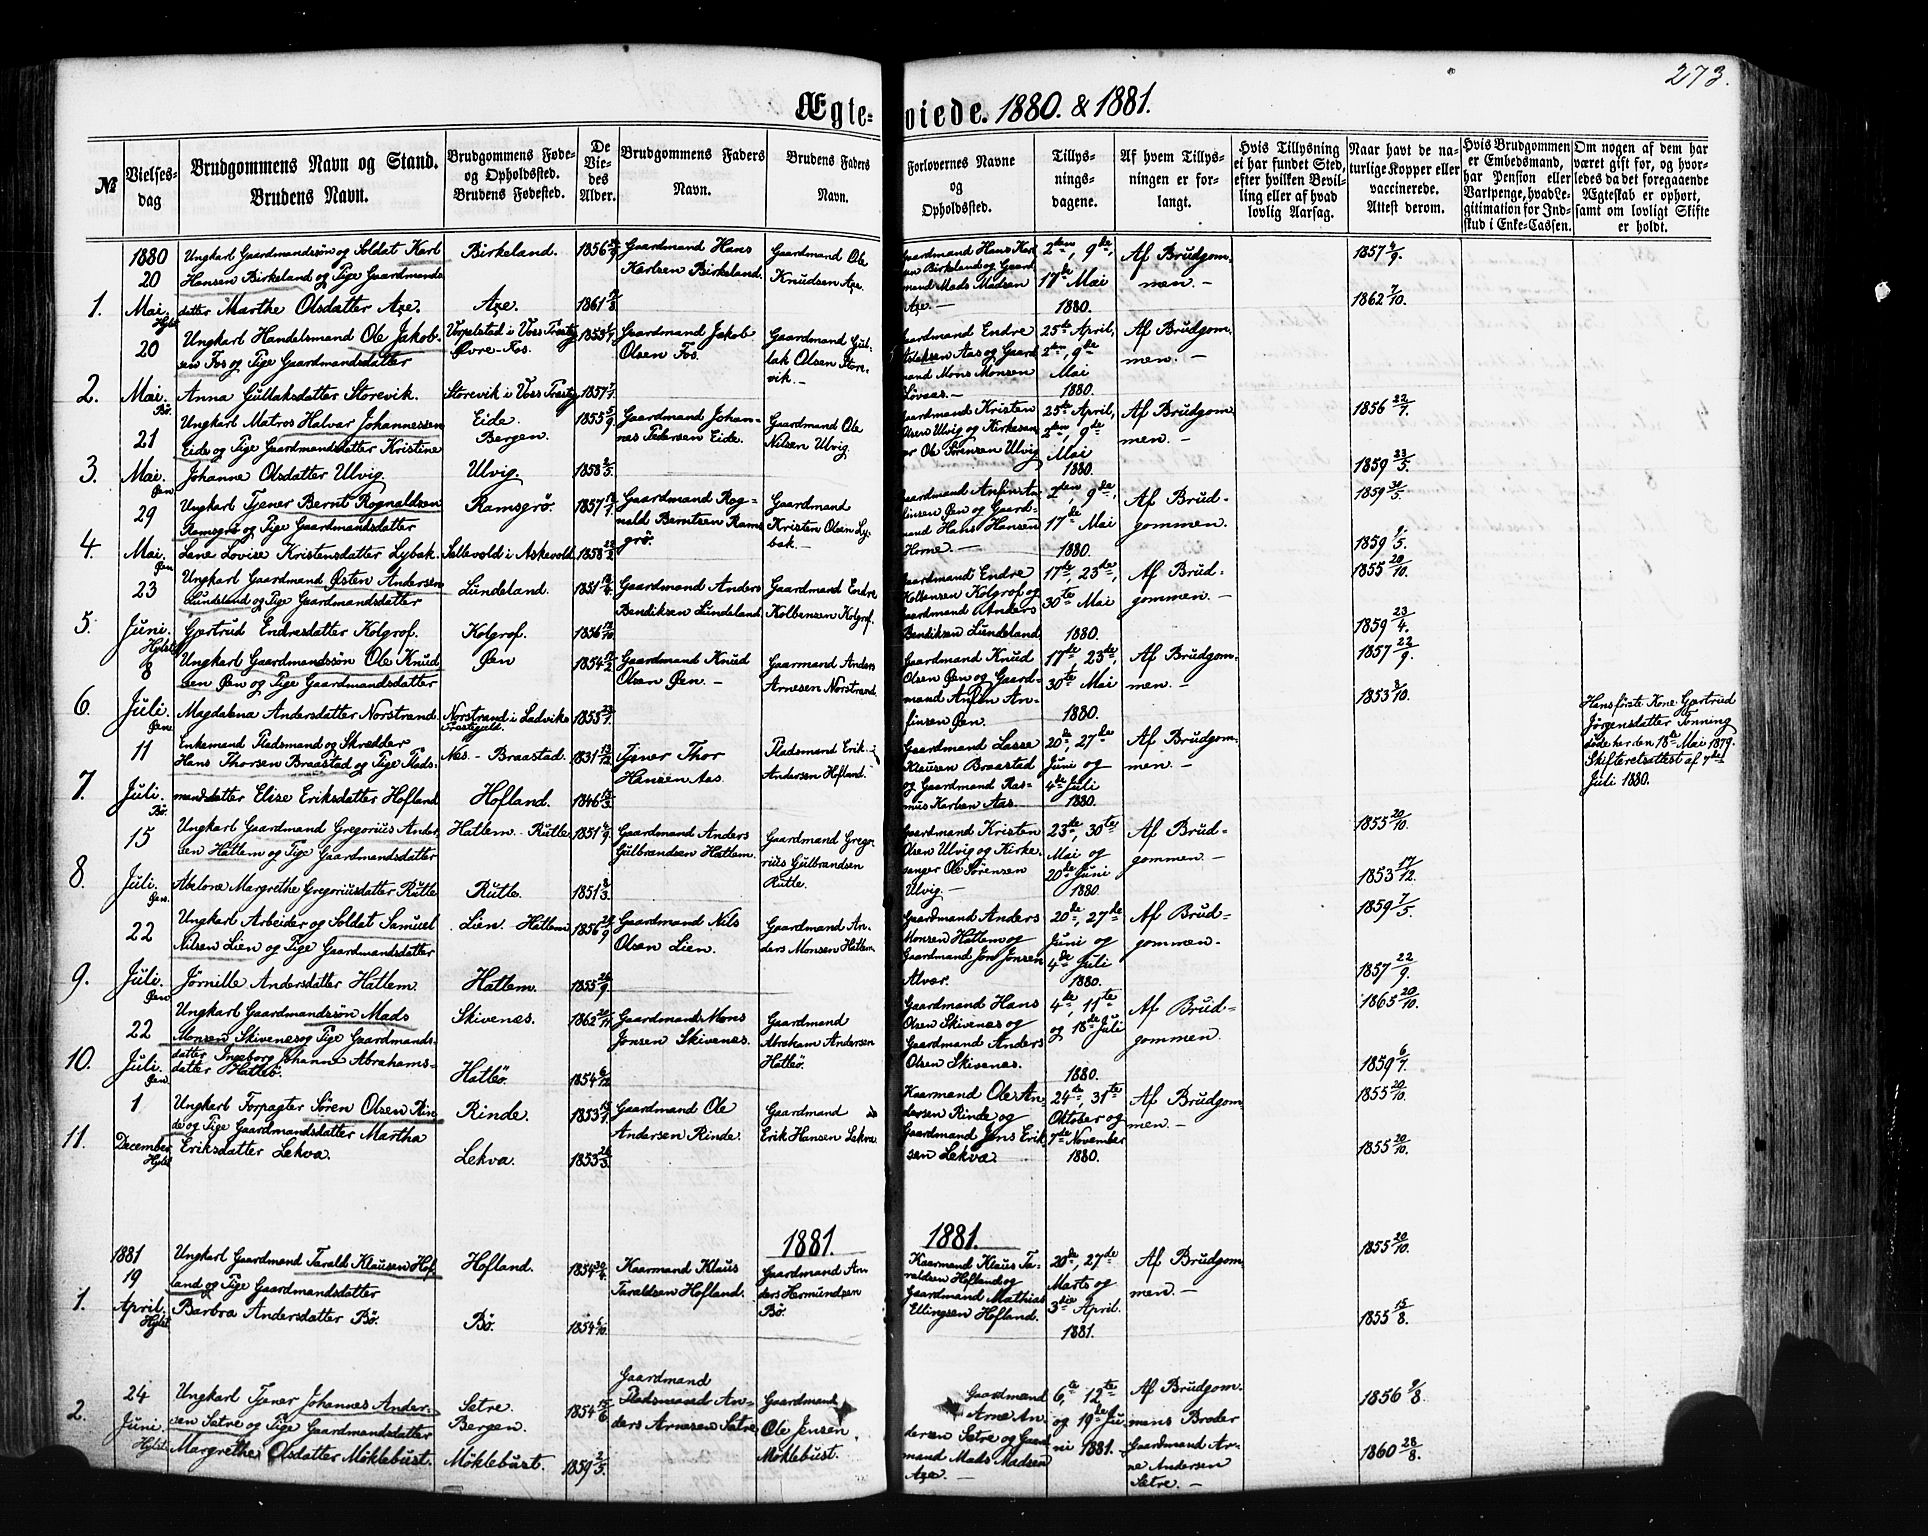 273.
Ægte-viede. 1880. & 1881.
№
Vielses-
dag
Brudgommens Navn og Stand.
Brudens Navn.
Brudgommens Føde-
og Opholdssted.
Brudens Fødested.
De
Vie-
des
Alder.
Brudgommens Faders
Navn.
Brudens Faders
Navn.
Forlovernes Navne
og
Opholdssted.
Tillys-
nings-
dagene.
Af hvem Tillys-
ningen er for-
langt.
Hvis Tillysning
ei har fundet Sted,
efter hvilken Bevil-
ling eller af hvad
lovlig Aarsag.
Naar havt de na-
turlige Kopper eller
vaccinerede.
Attest derom.
Hvis Brudgommen
er Embedsmand,
har Pension eller
Vartpenge, hvad Le-
gitimation for Ind-
skud i Enke-Cassen.
Om nogen af dem har
været gift for, og hvor-
ledes da det foregaaende
Ægteskab er ophørt,
samt om lovligt Skifte
er holdt.
1.
1880
20
Mai.
Hylst
Ungkarl Gaardmandssøn og Soldat Karl
Hansen Birkeland og Pige Gaardmands-
datter Marthe Olsdatter Aze.
Birkeland.
Aze.
1856
1861
Gaardmand Hans
Karlsen Birkeland.
Gaardmand Ole
Knudsen Aze.
Gaardmand Hans Karl
sen Birkeland og Gaard
mand Mads Madsen
Aze. —
2den, 9de,
17de Mai
1880.
Af Brudgom-
men. —
1857 4/9.
1862 7/10.
2.
20
Mai.
Bø.
Ungkarl Handelsmand Ole Jakob-
sen Fos og Pige Gaardmandsdatter
Anna Gullaksdatter Storevik.
Øvre-Fos.
Storevik i Voss Prstgj
1853
1857
Gaardmand Jakob
Olsen Fos.
Gaardmand Gul-
lak Olsen Store-
vik. —
Gaardmand Endre
Aslaksen Aas og Gaard
mand Mons Monsen
Løvaas. —
25te April,
2den, 9de
Mai
1880.
Af Brudgom-
men. —
3.
21
Mai.
Øen
Ungkarl Matros Halvar Johannessen
Eide og Pige Gaardmandsdatter Kristine
Johanne Olsdatter Ulvig.
Eide.
Bergen.
Ulvig.
1855 5/9
1858 2/5.
Gaardmand Johan-
nes Pedersen Eide.
Gaardmand Ole
Nilsen Ulvig.
Gaardmand Kristen
Olsen Ulvig og Kirkesan
ger Ole Sørensen Ulvig
25te April,
2den, 9de
Mai
1880.
Af Brudgom
men. —
1856 22/7.
1859 23/5.
4.
29
Mai.
Øen
Ungkarl Tjener Bernt Rognaldsen
Ramsgrø og Pige Gaardmandsdatter
Lene Lovise Kristensdatter Lybak.
Ramsgrø.
Sellevold i Askevold.
1857
1858
Gaardmand Rog-
nald Berntsen Rams
grø.
Gaardmand
Kristen Olsen Ly-
bak. —
Gaardmand Anfin An-
finsen Øen og Gaard-
mand Hans Hansen
Horne. —
2den, 9de,
17de Mai
1880.
Af Brud-
gommen.
1859 30/5.
1859
5.
23
Juni.
Hylst
Ungkarl Gaardmand Østen Andersen
Lundeland og Pige Gaardmandsdatter
Gjertrud Endresdatter Kolgrof.
Lundeland.
Kolgrof.
1851
1856
Gaardmand Anders
Bendiksen Lundeland.
Gaardmand Endre
Kolbensen Kolgrof.
Gaardmand Endre
Kolbensen Kolgrof og
Gaardmand Anders
Bendiksen Lundeland
17de, 23de,
30te Mai
1880.
Af Brud-
gommen. —
1855 20/10.
1859 23/4.
6.
8
Juli.
Øen
Ungkarl Gaardmandssøn Ole Knud
sen Øen og Pige Gaardmandsdatter
Magdalena Andersdatter Norstrand.
Øen
Norstrand i Ladviks
Præstegjeld.
1854
1855
Gaardmand Knud
Olsen Øen. —
Gaarmand Anders
Arnesen Norstrand.
Gaardmand Knud
Olsen Øen og Gaard-
mand Anfin An-
finsen Øen.
17de, 23de,
30te Mai
1880.
Af Brudgom-
men. —
1857 22/9.
1853 8/10.
7.
11
Juli.
Bø.
Enkemand Pladsmand og Skrædder
Hans Thorsen Braastad og Pige Plads-
mandsdatter Elise Eriksdatter Hofland
Nes. - Braastad.
Hofland.
1831
1846
Tjener Thor
Hansen Aas.
Pladsmand Erik
Andersen Hofland.
Gaardmand Lasse
Klausen Braastad
og Gaardmand Ras-
mus Karlsen Aas.
20de, 27de
Juni og
4de Juli
1880.
Af Brudgom-
men. —
Hans første Kone Gjertrud
Jørgensdatter Tonning
døde her den 18de Mai 1879.
Skifteretsattest af 7de
Juli 1880.
8.
15
Juli.
Øen.
Ungkarl Gaardmand Gregorius Ander
sen Hatlem og Pige Gaardmandsdatter
Abelone Margrethe Gregoriusdatter Rutle
Hatlem - Rutle
Rutle.
1851 4/9
1851 8/3
Gaardmand Anders
Gulbrandsen Hatlem.
Gaardmand Grego
rius Gulbrandsen
Rutle.
Gaardmand Kristen
Olsen Ulvig og Kirke-
sanger Ole Sørensen
Ulvig. —
23de, 30te
Mai og
20de Juni
1880.
Af Brud-
gommen. —
1855 20/10.
1853 17/12.
9.
22
Juli.
Øen
Ungkarl Arbeider og Soldat Samuel
Nilsen Lien og Pige Gaardmandsdatter
Jørnille Andersdatter Hatlem.
Lien. Hatlem
Hatlem.
1856
1855
Gaardmand Nils
Olsen Lien.
Gaardmand An-
ders Monsen Hatlem.
Gaardmand Anders
Monsen Hatlem og
Gaardmand Jon Jonsen
Alvær.
20de, 27de
Juni og
4de Juli
1880.
Af Brud-
gommen.
1859 7/5.
1857 22/9.
10.
22
Juli.
Øen.
Ungkarl Gaardmandssøn Mads
Monsen Skivenes og Pige Gaardmands-
datter Ingeborg Johanna Abrahams-
datter Hatlø.
Skivenes.
Hatlø.
1862
1854
Gaardmand Mons
Jonsen Skivenes.
Gaardmand
Abraham Andersen
Hatlø.
Gaardmand Hans
Olsen Skivenes og
Gaardmand Anders
Olsen Skivenes.
4de, 11te
og 18de Juli
1880.
Af Brud-
gommen.
1865 20/10.
1859 6/7.
11.
1
December.
Hylst
Ungkarl Forpagter Søren Olsen Rin
de og Pige Gaardmandsdatter Martha
Eriksdatter Lekva.
Rinde.
Lekva.
1853
1855
Gaardmand Ole
Andersen Rinde.
Gaardmand
Erik Hansen Lekva.
Kaarmand Ole An-
dersen Rinde og
Gaardmand Jens Erik
sen Lekva.
24de, 31te
Oktober og
7de November
1880.
Af Brudgom
men. —
1855 20/10.
1855 20/10.
1881.
1881.
1.
1881
19
April.
Hylst
Ungkarl Gaardmand Tarald Klausen Hof-
land og Pige Gaardmandsdatter
Barbra Andersdatter Bø.
Hofland.
Bø.
1854
1854 6/10.
Kaarmand Klaus
Taraldsen Hofland.
Gaardmand An-
ders Hermundsen
Bø.
Kaarmand Klaus Ta-
raldsen Hofland og
Gaardmand Mathias
Ellingsen Hofland.
20de, 27de
Marts og
3die April.
1881.
Af Brudgom
men. —
1855 20/10.
1855 15/8.
2.
24
Juni.
Hylst
Ungkarl Tjener Johannes Ander-
sen Sætre og Pige Gaardmandsdatter
Margrethe Olsdatter Møklebust.
Sætre
Bergen.
Møklebust.
1854
1859 2/5.
Gaardmand
Pladsmand An-
ders Arnesen Sætre
Gaardmand
Ole Jensen
Møklebust.
Gaardmand
Arne An-
dersen Sætre og Gaard
mand Mads Madsen
Aze. —
6te, 12te
og 19de Ju
ni 1881.
Af Brudgom-
mens Broder
Gaardmand Ar-
ne Andersen
Sætre. —
1856 9/8.
1860 28/8.